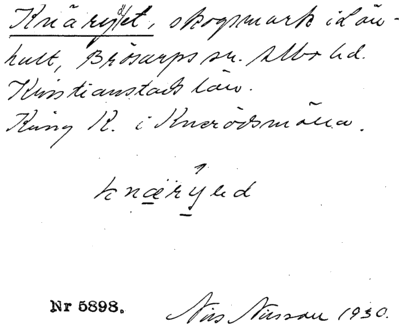 Knäryet, skogsmark i Lön-
hult, Brösarps sn. Albo hd.
Kristianstads län.
Kring K. i
knæryed
Nr 5898. Nils Nilsson 1930.